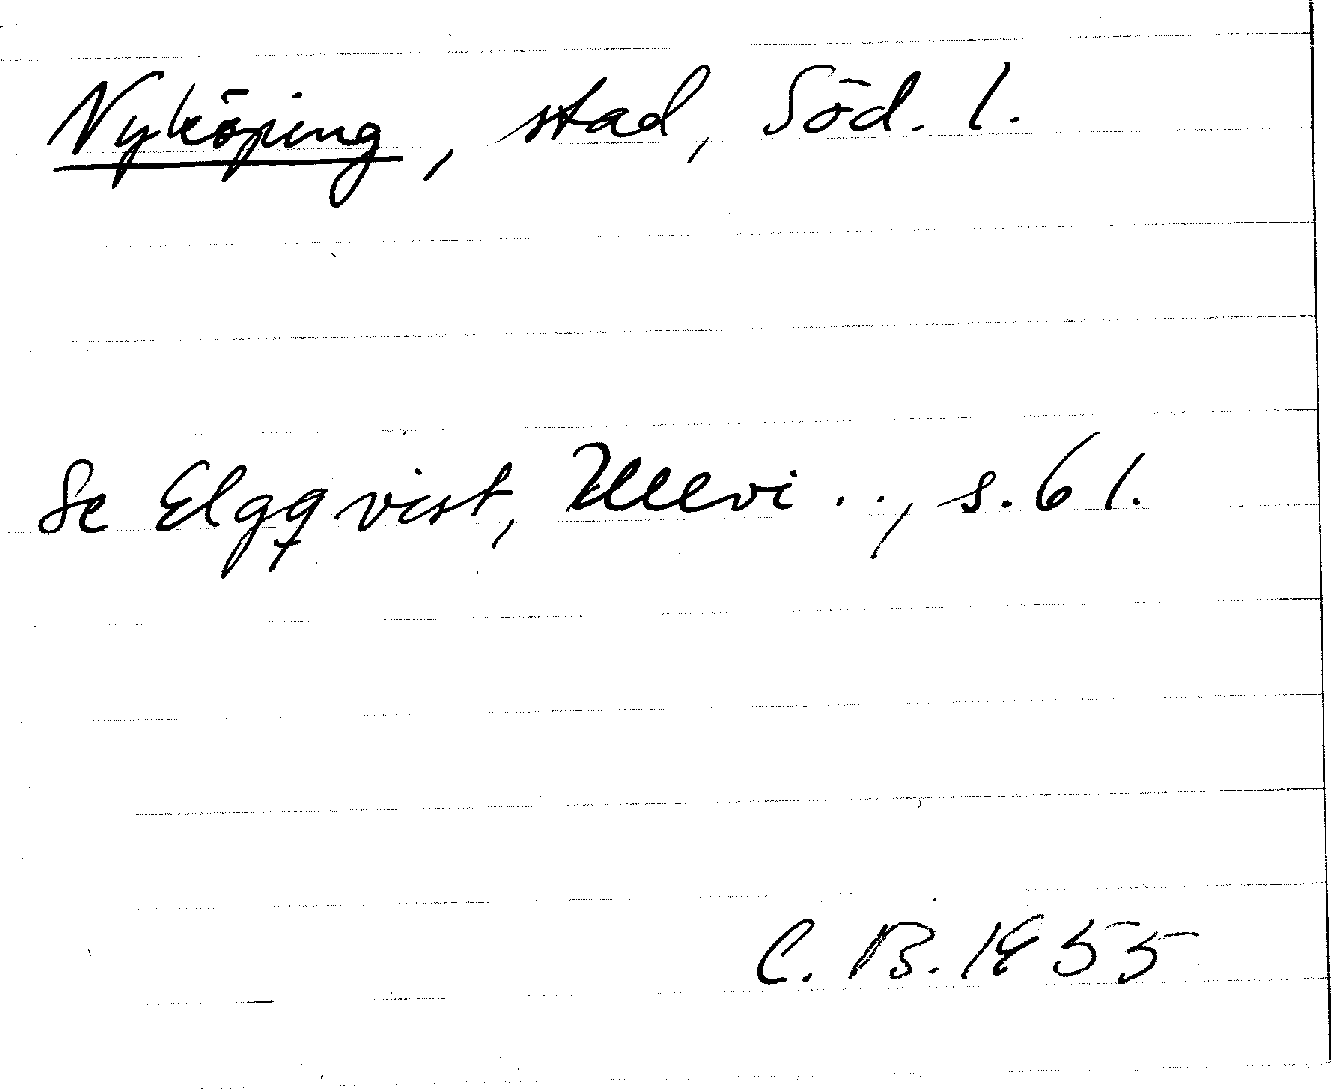 Nyköping, stad, Söd. l.
Se Elgqvist, Ullevi . . , s. 61.
C. B. 1955